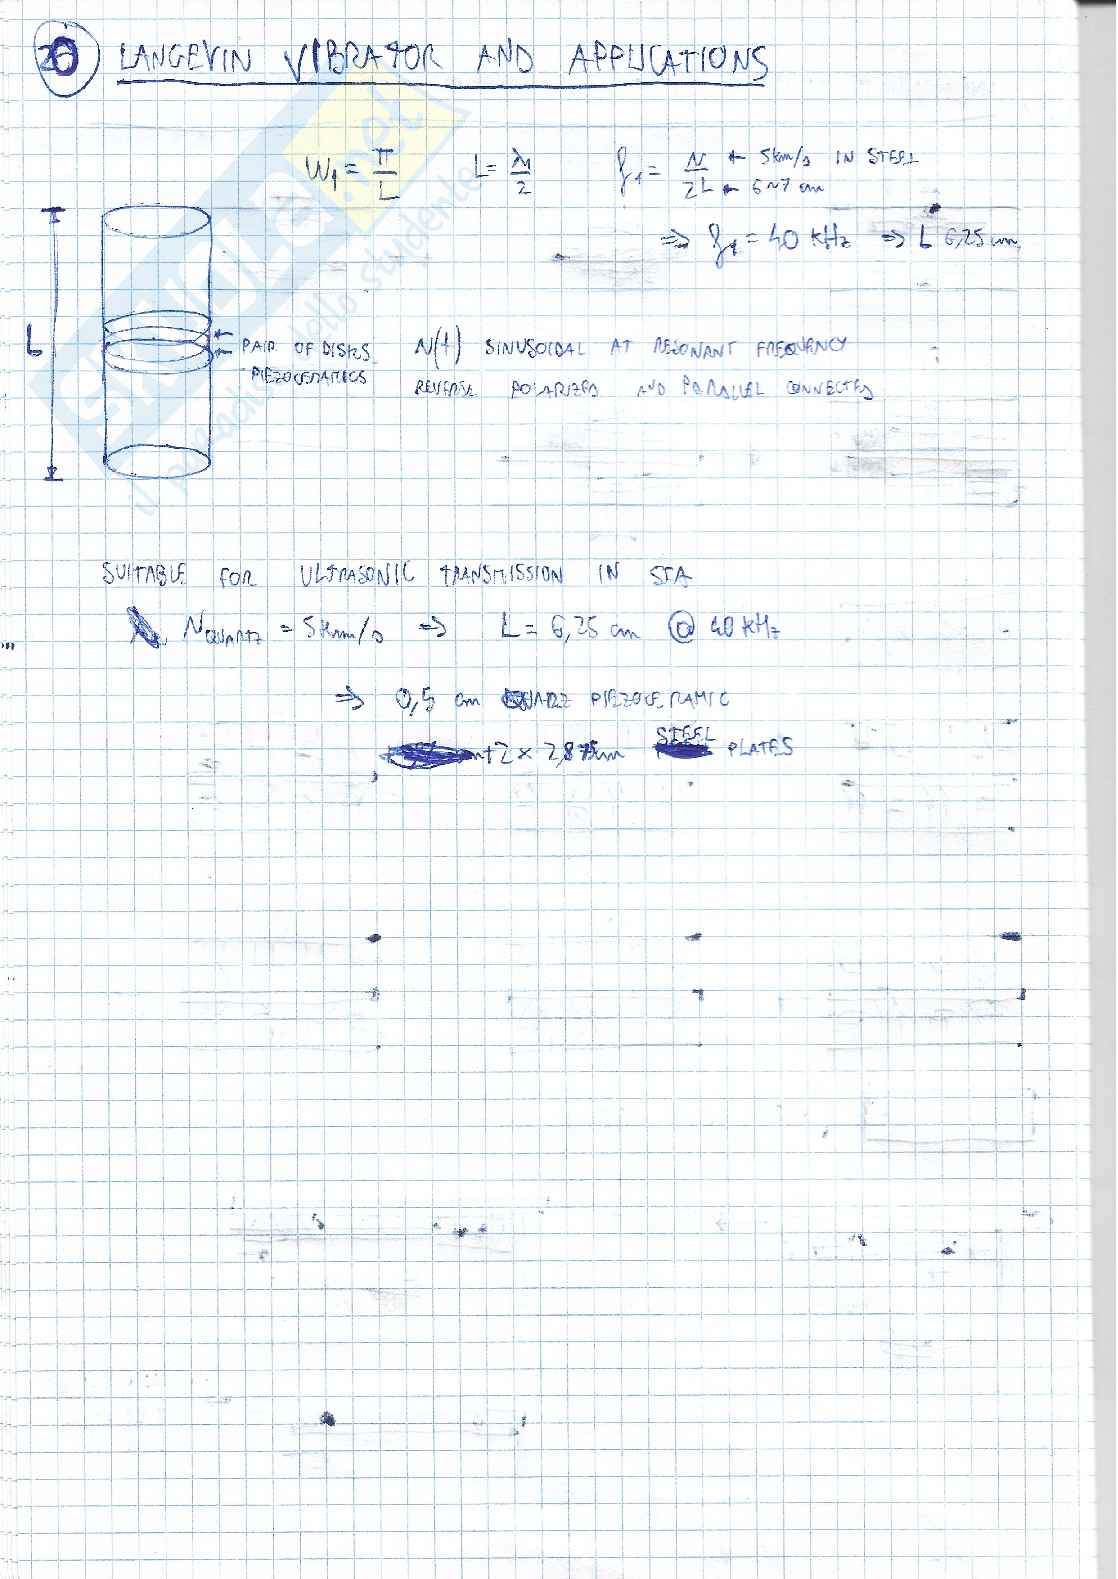 20 LANGEVIN VIBRATOR AND APPLICATIONS
W₁ = π/L   L = λ₁/2   f₁ = v/2L ← 5km/s IN STEEL
← 6~7 cm
⇒ f₁ = 40 KHz ⇒ L 6,25 cm
L
← PAIR OF DISKS
← PIEZOCERAMICS
v(t) SINUSOIDAL AT RESONANT FREQUENCY
REVERSE POLARIZED AND PARALLEL CONNECTED
SUITABLE FOR ULTRASONIC TRANSMISSION IN SEA
v QUARTZ = 5km/s ⇒ L = 6,25 cm @ 40 KHz
⇒ 0,5 cm QUARZ PIEZOCERAMIC
+2 × 2,875cm STEEL PLATES
STUDIA.net
il paradiso dello studente